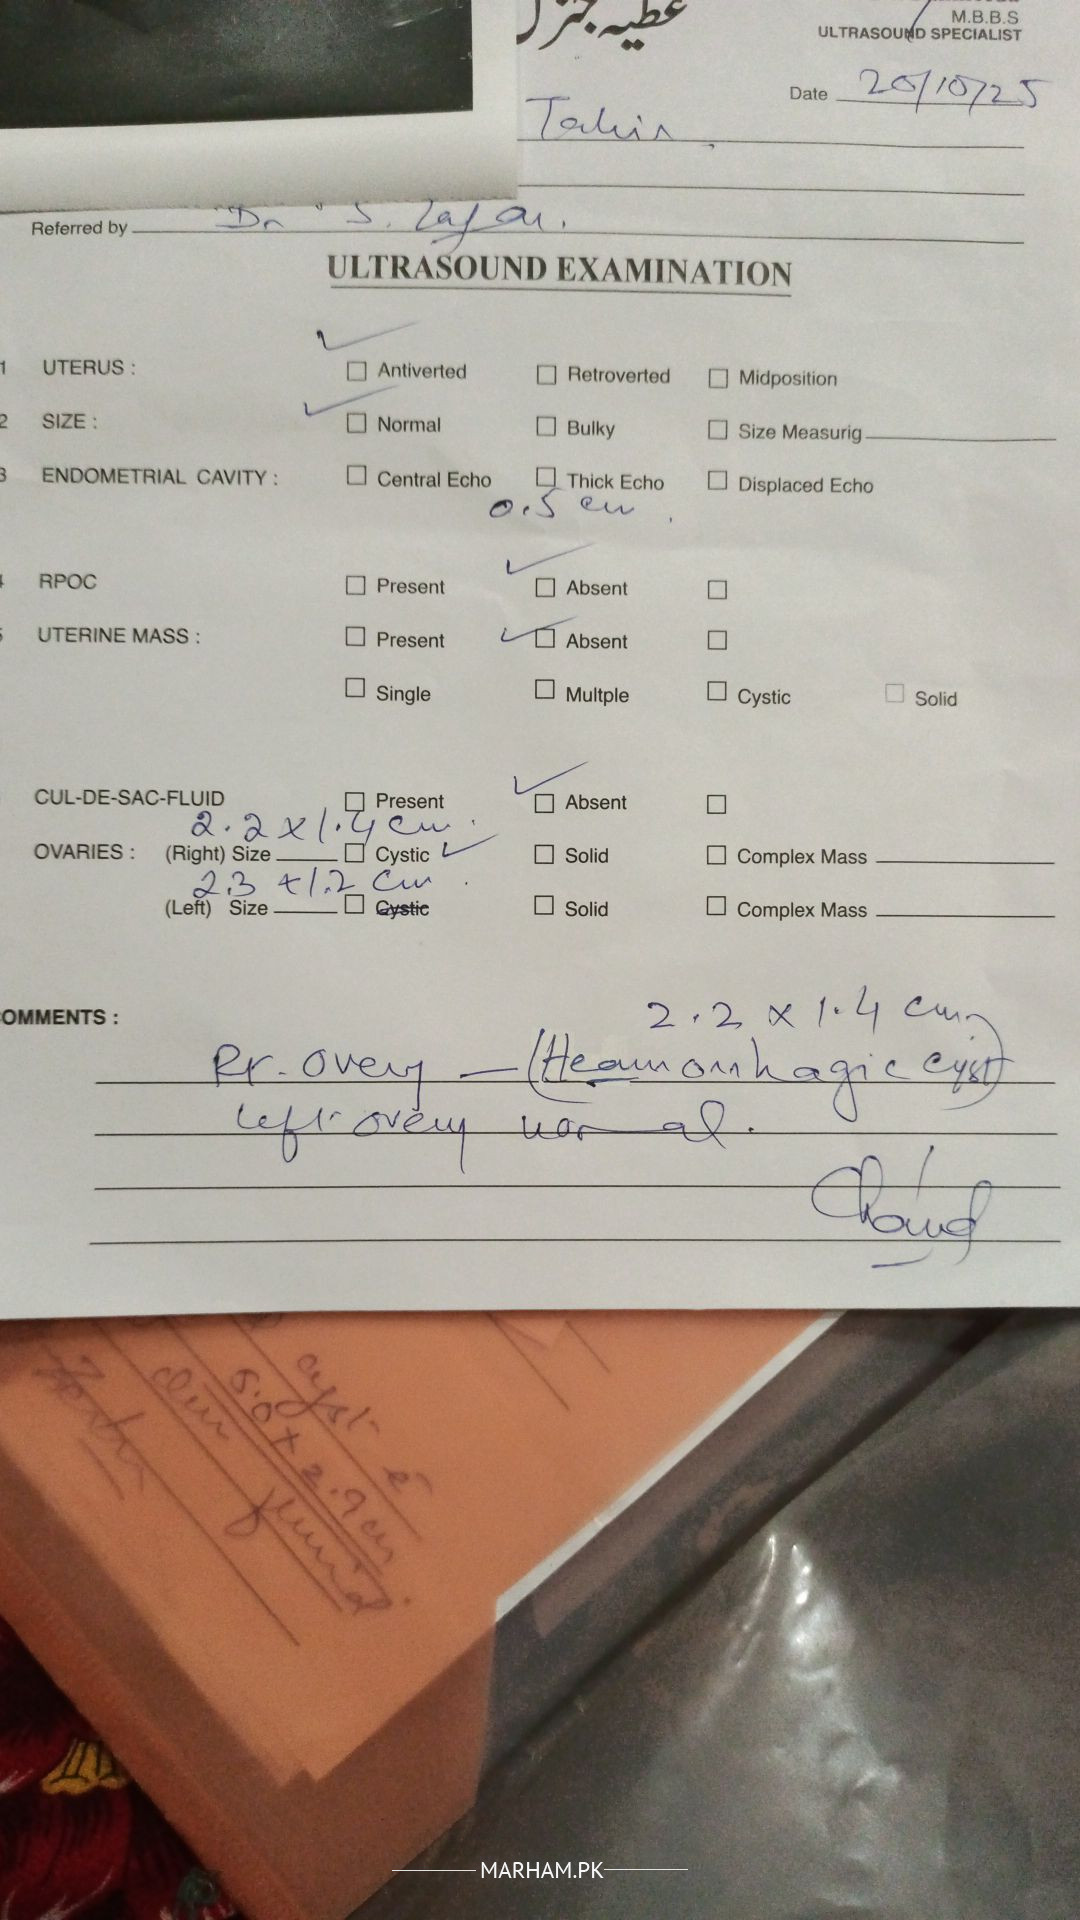 عطیہ جنرل
M.B.B.S
ULTRASOUND SPECIALIST
Date 20/10/25
Tahir
Referred by Dr S. Zafar.
ULTRASOUND EXAMINATION
1 UTERUS : Antiverted Retroverted Midposition
2 SIZE : Normal Bulky Size Measurig
3 ENDOMETRIAL CAVITY : Central Echo Thick Echo Displaced Echo
0.5 cm
RPOC Present Absent
UTERINE MASS : Present Absent
Single Multple Cystic Solid
CUL-DE-SAC-FLUID Present Absent
2.2 x 1.4 cm.
OVARIES : (Right) Size Cystic Solid Complex Mass
2.3 x 1.2 cm.
(Left) Size Cystic Solid Complex Mass
2.2 x 1.4 cm
OMMENTS :
Rt. Overy — (Heamorrhagic cyst)
left overy normal.
cyst
5.0 x 2.9 cm
MARHAM.PK